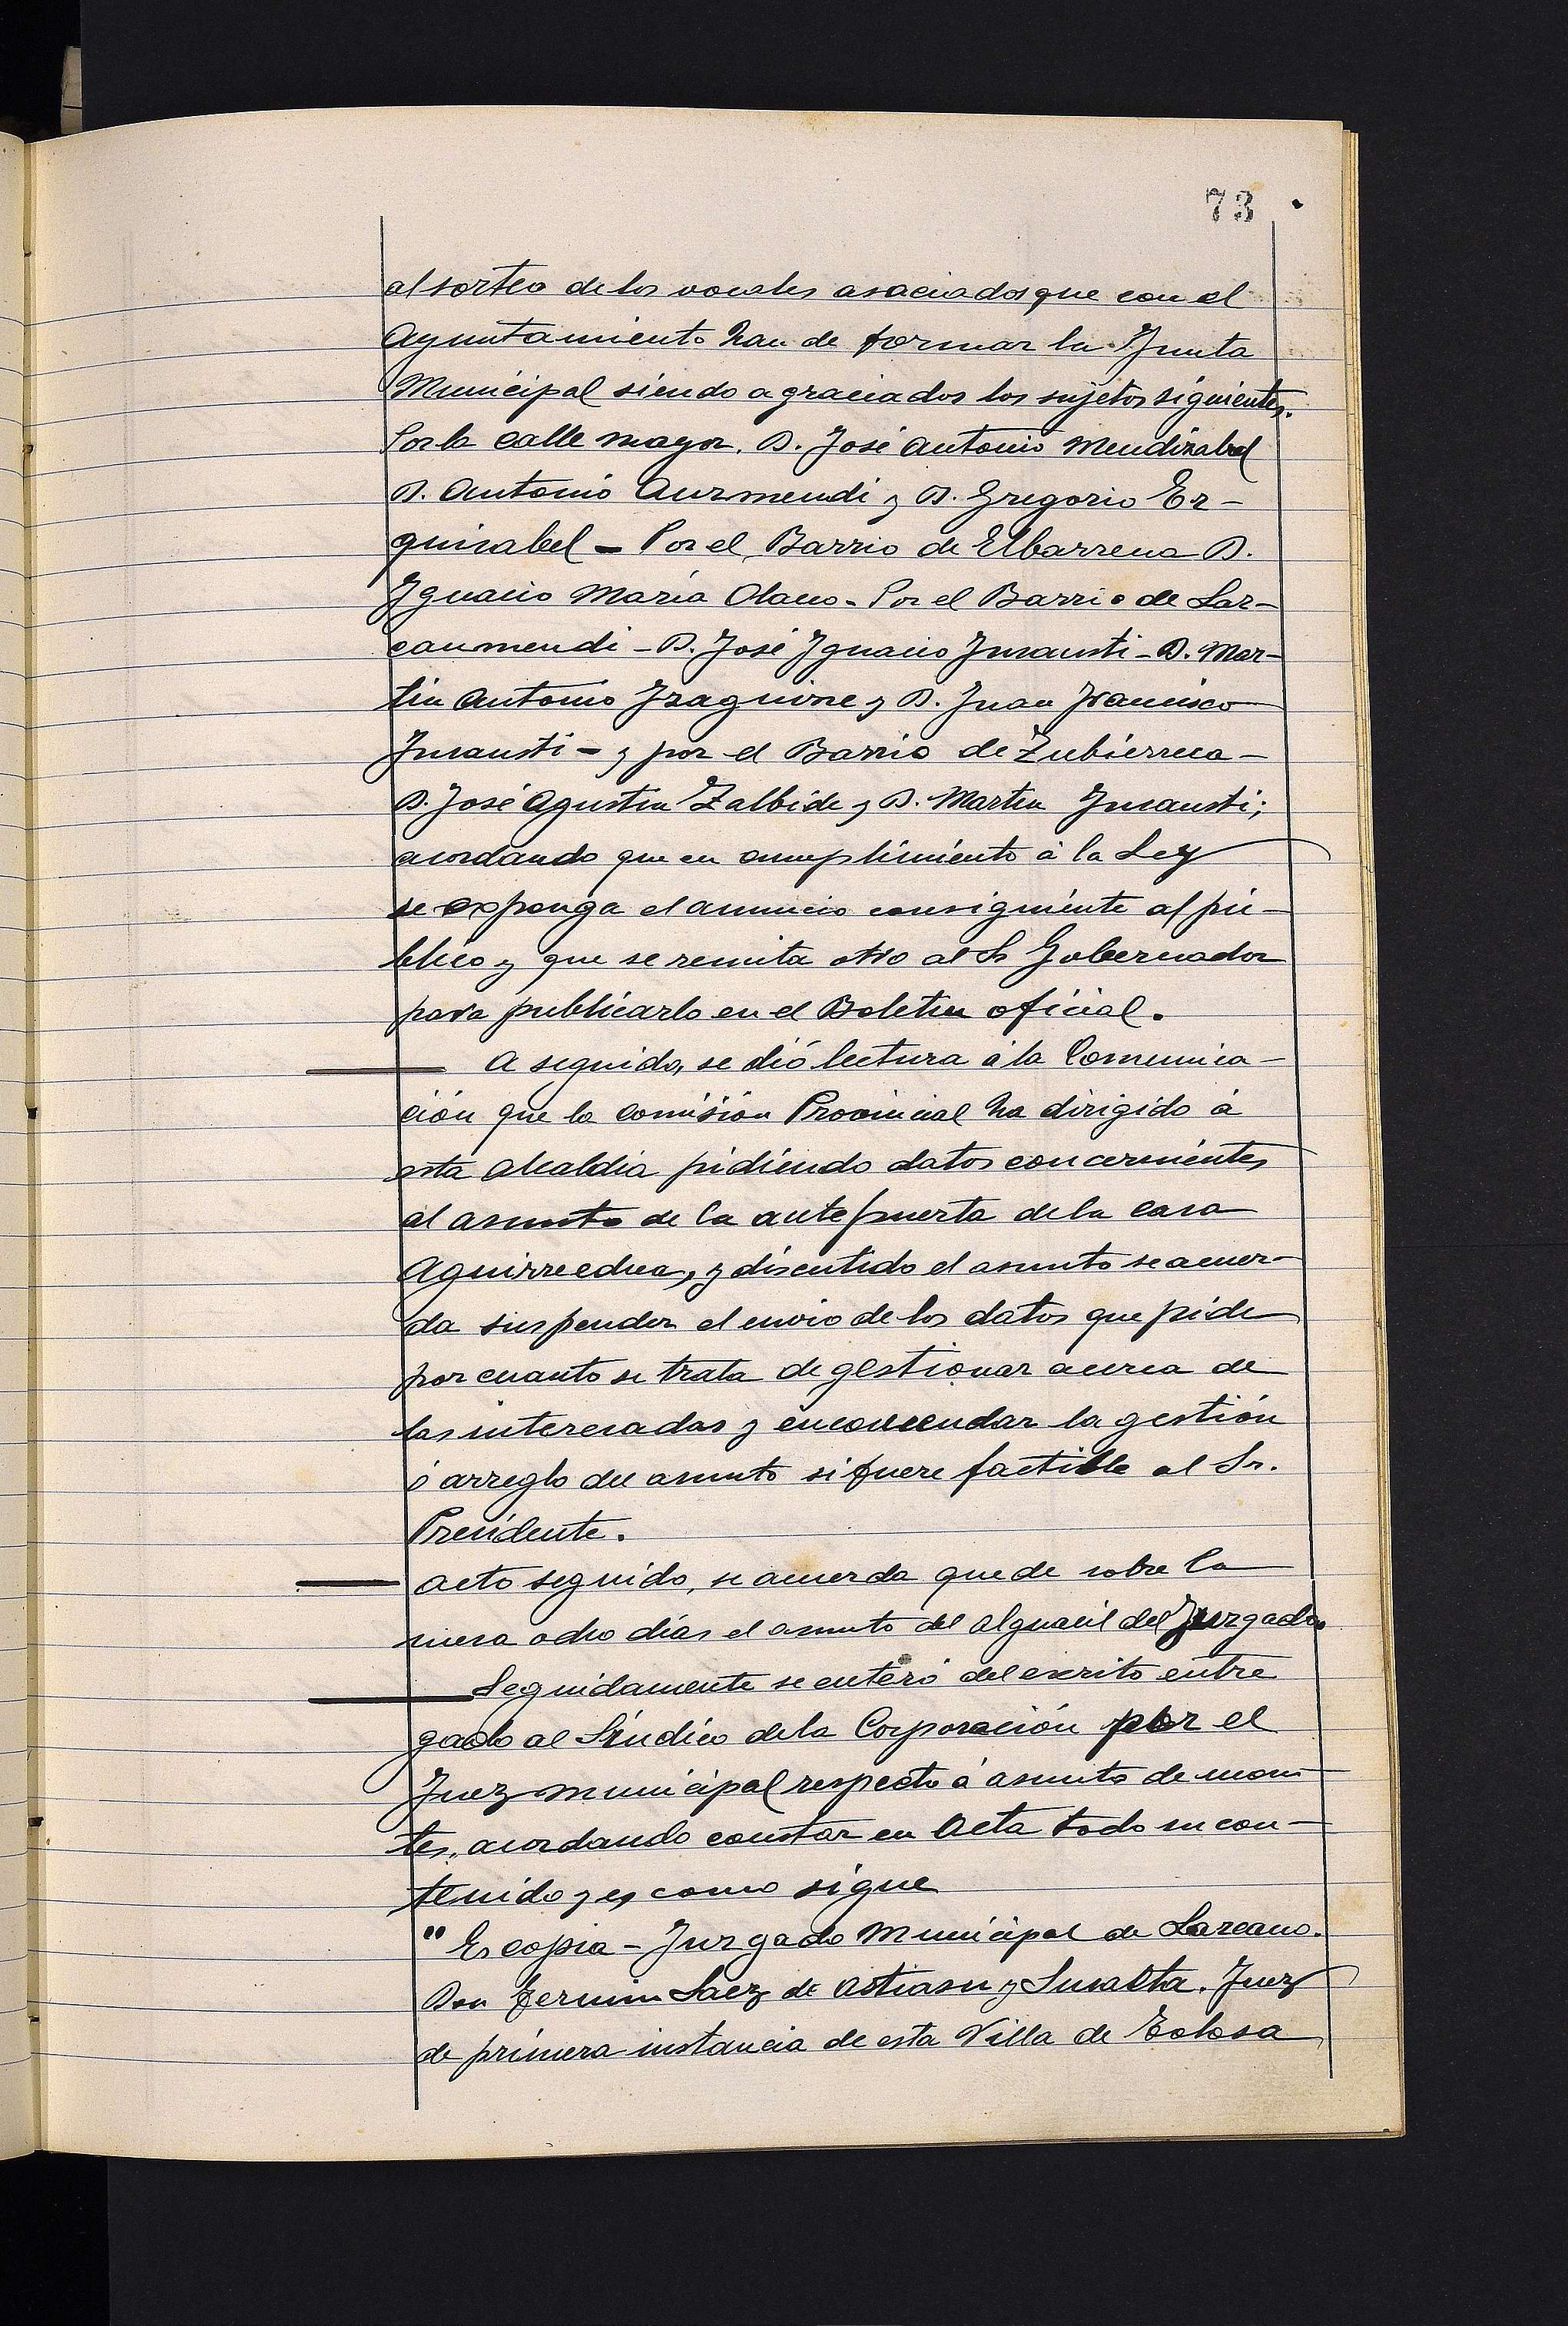 73
al sorteo de los vocales asociados que con el
Ayuntamiento han de formar la Junta
Municipal siendo agraciados los sujetos siguientes.
Por la calle mayor. D. José Antonio Mendizabal
D. Antonio Aurmendi y D. Gregorio Er-
quizabel - Por el Barrio de Elbarrena D.
Ignacio María Olano - Por el Barrio de Laz-
caumendi - D. José Ignacio Insausti - D. Mar-
tin Antonio Izaguirre y D. Juan Francisco
Insausti - y por el Barrio de Zubierreca -
D. José Agustin Zalbide y D. Martin Insausti;
acordando que en cumplimiento á la Ley
se exponga el anuncio consiguiente al pú-
blico y que se remita otro al Sr Gobernador
para publicarlo en el Boletin oficial.
A seguida, se dió lectura á la Comunica-
ción que la Comisión Provincial ha dirigido á
esta Alcaldia pidiendo datos concernientes
al asunto de la antepuerta de la casa
Aguirreechea, y discutido el asunto se acuer-
da suspender el envio de los datos que pide
por cuanto se trata de gestionar acerca de
las interesadas y encomendar la gestión
ó arreglo del asunto si fuere factible al Sr.
Presidente.
Acto seguido, se acuerda quede sobre la
mesa ocho días el asunto del Alguacil del Juzgado.
Seguidamente se enteró del escrito entre
gado al Síndico de la Corporación por el
Juez municipal respecto á asunto de mon
tes, acordando constar en Acta todo su con-
tenido y es como sigue
" Es copia - Juzgado Municipal de Lazcano.
Don Fermin Saez de Astiasu y Suralta. Juez
de primera instancia de esta Villa de Tolosa